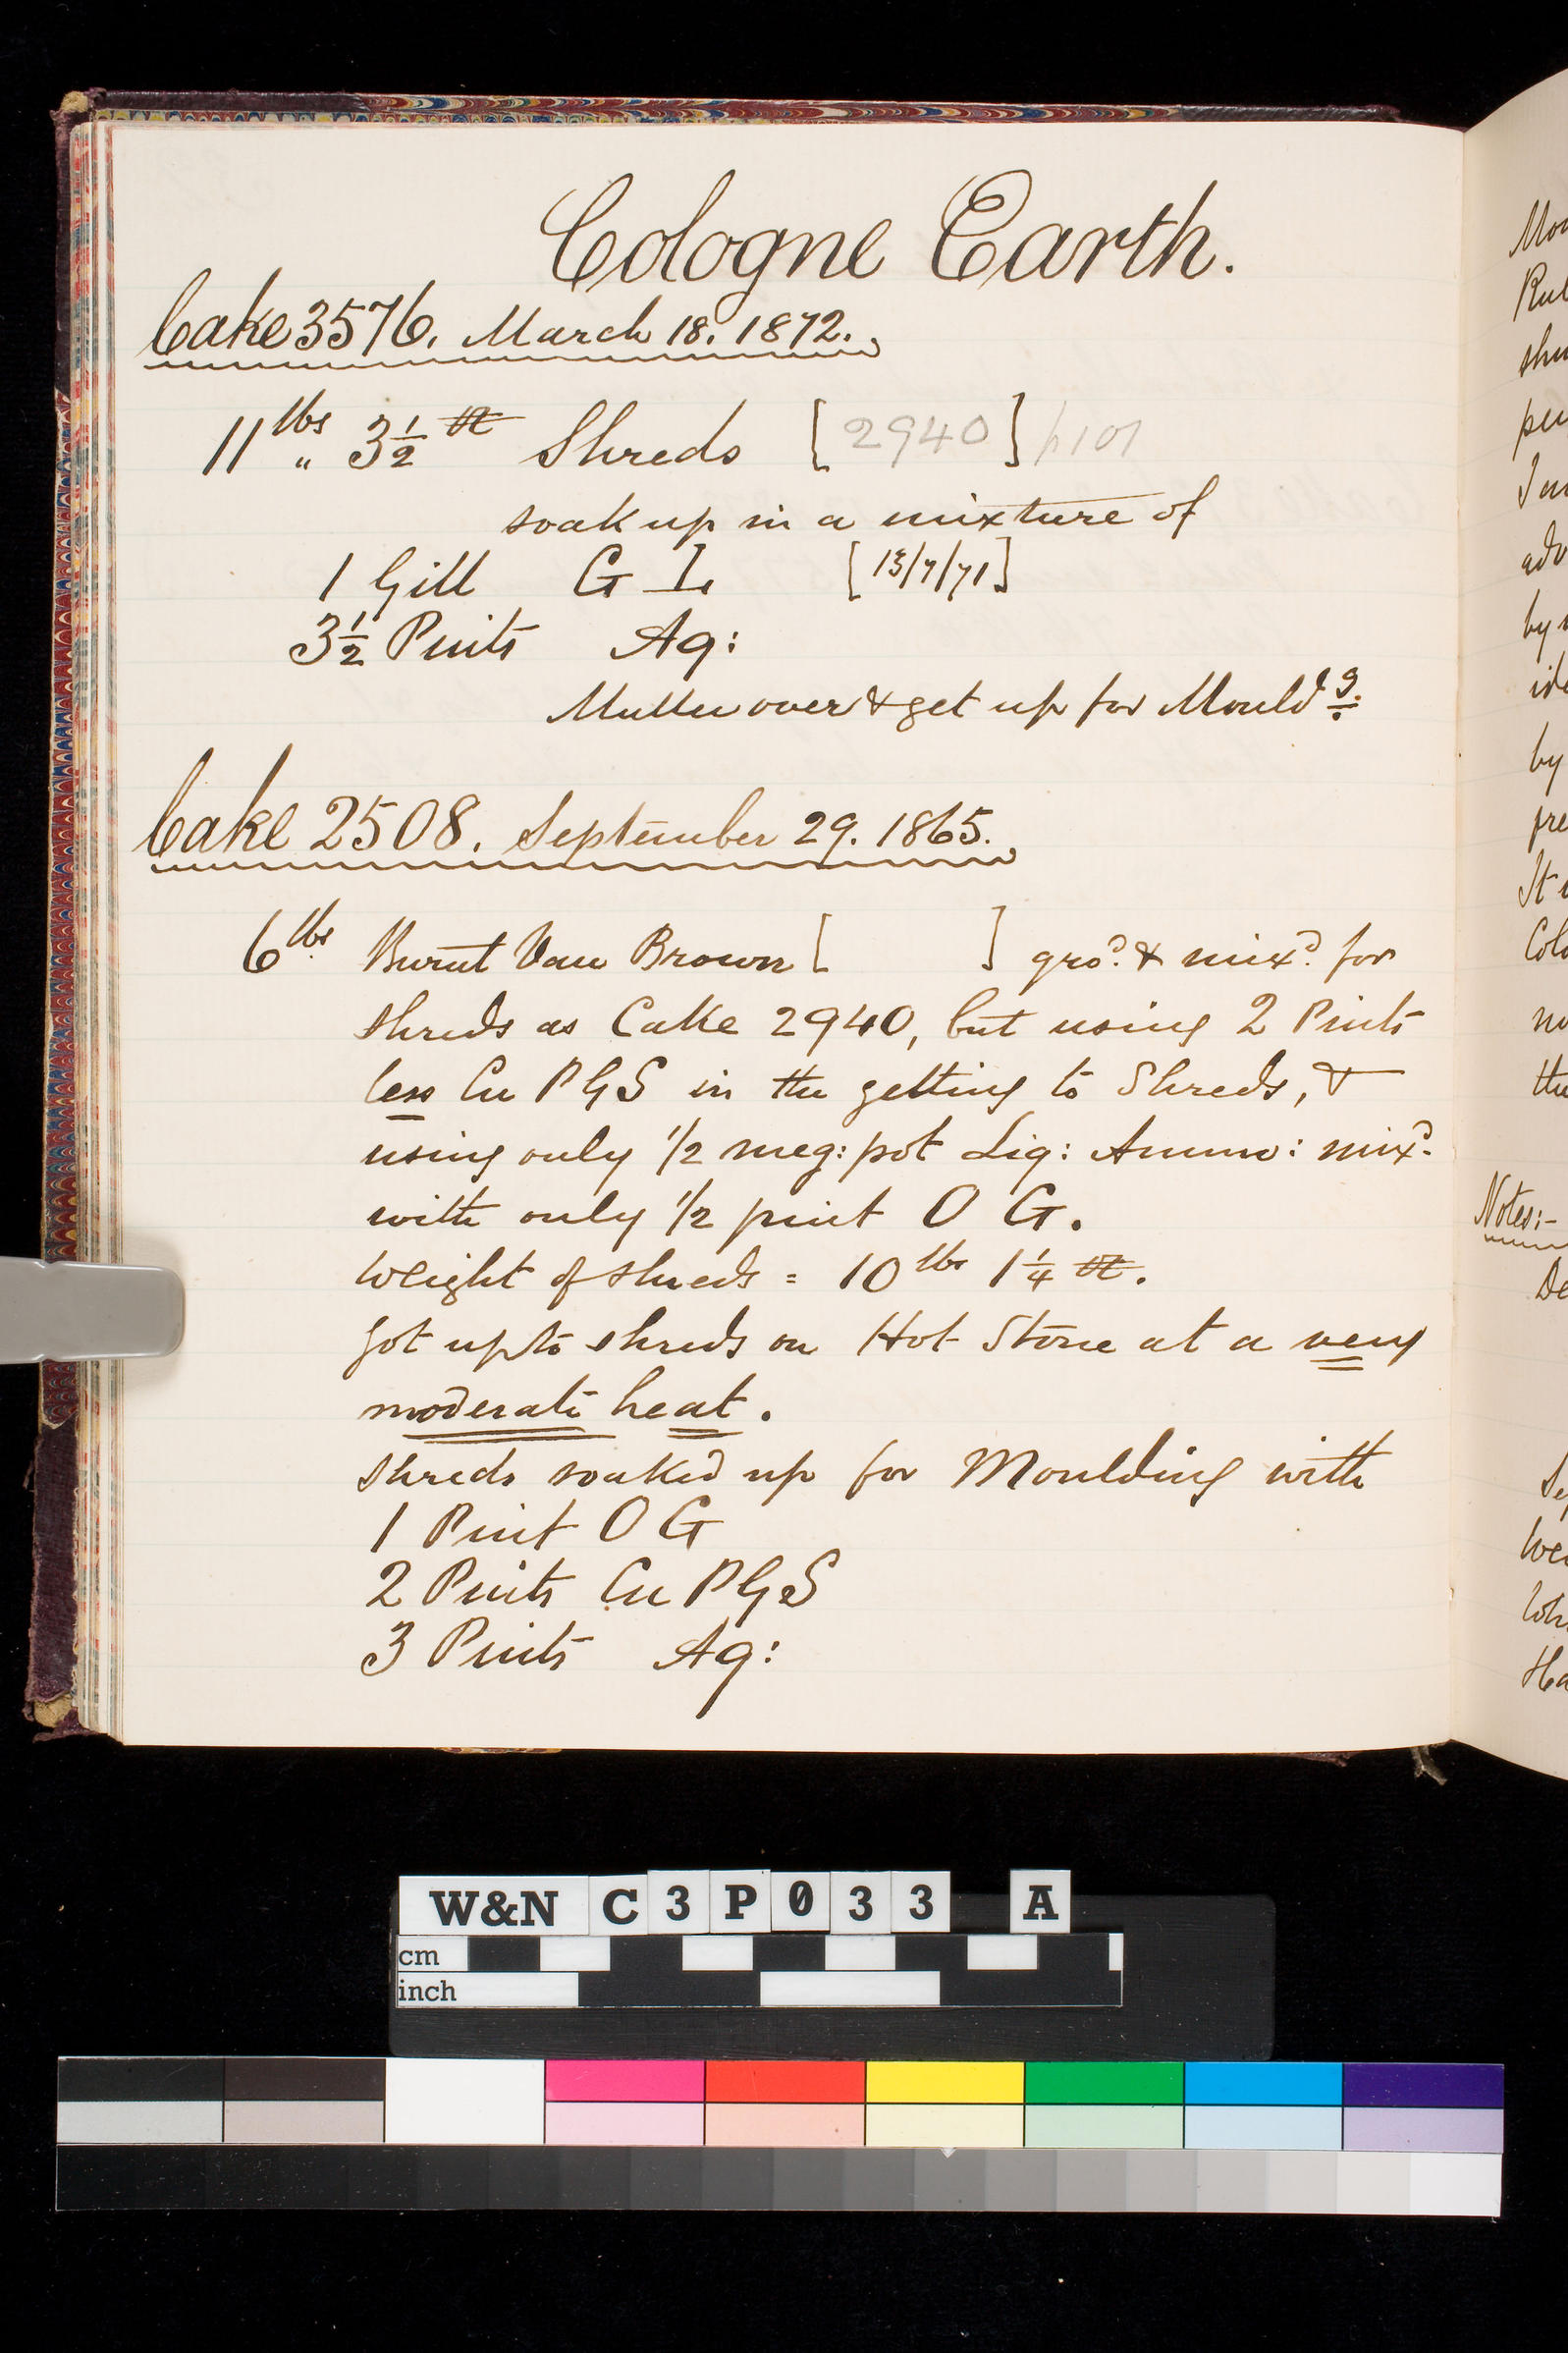 Cologne Earth.
Cake 3576. March 18. 1872.
11 lbs „ 3½ Shreds [2940] p101
soak up in a mixture of
1 Gill G I. [13/7/71]
3½ Pints Aq:
Muller over & get up for Mouldg.
Cake 2508. September 29. 1865.
6 lbs. Burnt Van Brown [ ] grod. & mixd. for
shreds as Cake 2940, but using 2 Pints
less Cu PGS in the getting to Shreds, &
using only 1/2 meg: pot Liq: Ammo: mixd.
with only 1/2 pint O G.
Weight of shreds = 10 lbs 1¼
Got up to shreds on Hot Stone at a very
moderate heat.
Shreds soaked up for Moulding with
1 Pint O G
2 Pints Cu PGS
3 Pints Aq:
Notes:-
W&N C3P033 A
cm
inch